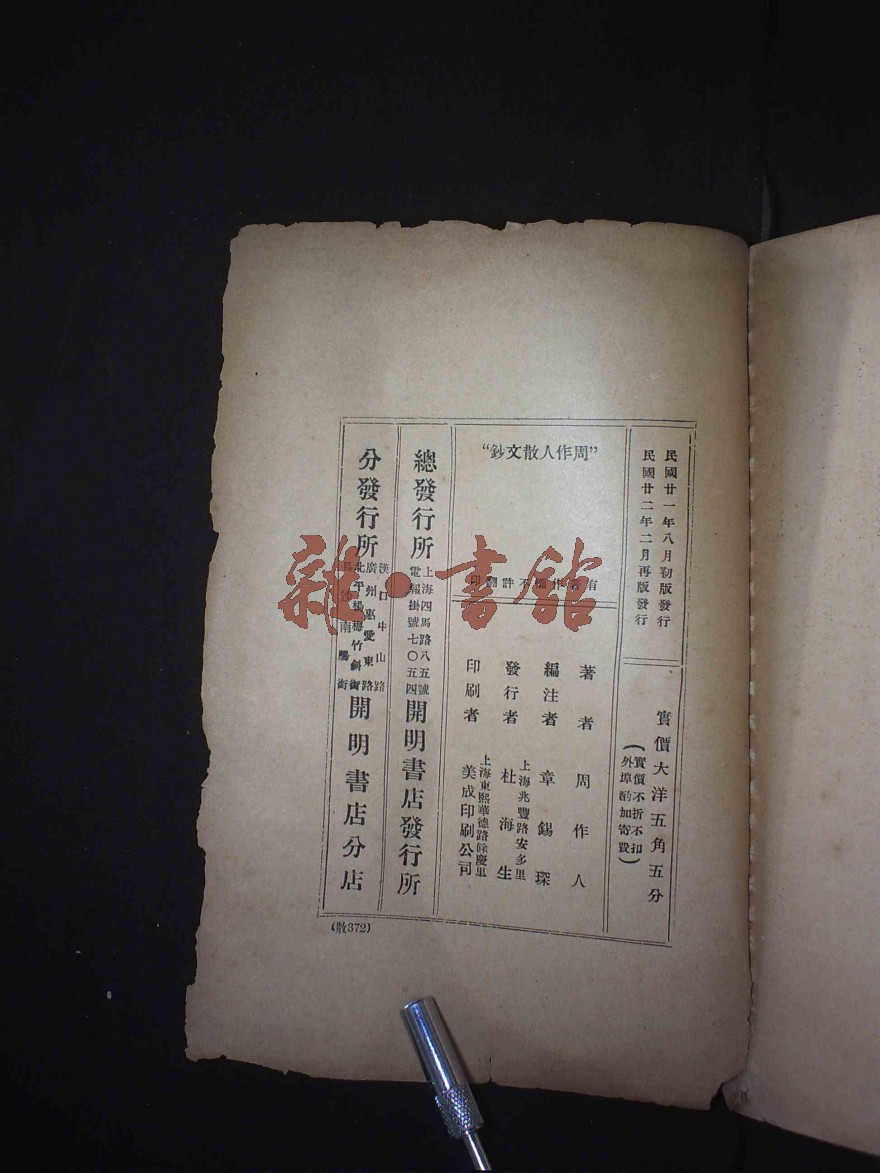 民國廿一年八月初版發行
民國廿二年二月再版發行
實價大洋五角五分
(實價不折不扣
外埠酌加寄費)
“周作人散文鈔”
有著作權不許翻印
著者 周作人
編注者 章錫琛
發行者 上海兆豐路安多里 杜海生
印刷者 上海東熙華德路餘慶里 美成印刷公司
總發行所 上海四馬路八五號 電報掛號七〇五四 開明書店發行所
分發行所
漢口中山路
廣州惠愛東路
北平楊梅竹斜街
南陽街
開明書店分店
(散372)
雜·書館